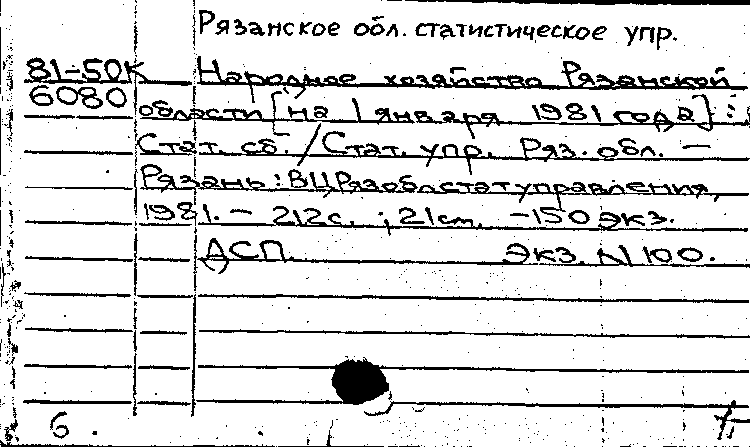 Рязанское обл. статистическое упр.
81-50К Народное хозяйство Рязанской
6080 области [на 1 января 1981 года] :
Стат. сб. / Стат. упр. Ряз. обл. —
Рязань : ВЦ Рязоблстатуправления,
1981. — 212с. ; 21см. — 150 экз.
ДСП. Экз. N 100.
6 .